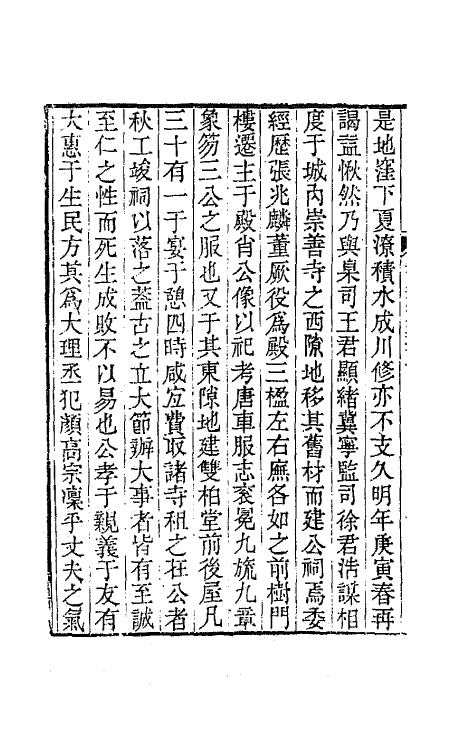 是地窪下夏潦積水成川修亦不支久明年庚寅春再
謁益愀然乃與臬司王君顯緒冀寧監司徐君浩謀相
度于城內崇善寺之西隙地移其舊材而建公祠焉委
經歷張兆麟董厥役爲殿三楹左右廡各如之前樹門
樓遷主于殿肖公像以祀考唐車服志衮冕九旒九章
象笏三公之服也又于其東隙地建雙柏堂前後屋凡
三十有一于宴于憩四時咸宜費取諸寺租之在公者
秋工竣祠以落之蓋古之立大節辦大事者皆有至誠
至仁之性而死生成敗不以易也公孝于親義于友有
大惠于生民方其爲大理丞犯顏高宗凜乎丈夫之氣